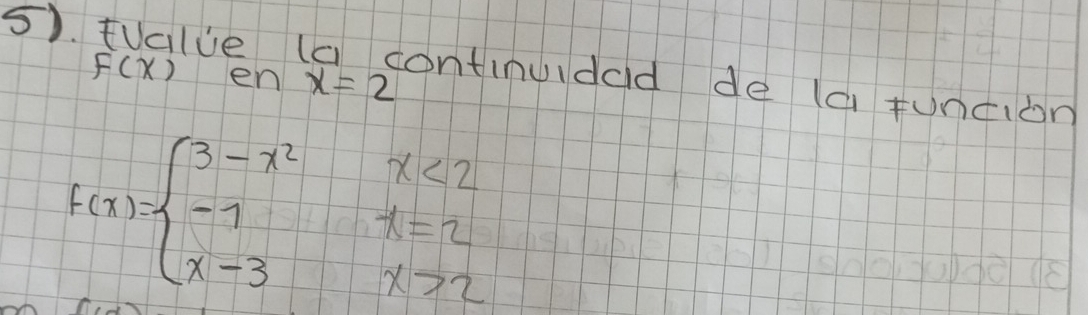 5). Evalúe la continuidad de la función
f(x) en x=2
f(x)= { 3-x² x<2
-1 x=2
x-3 x>2